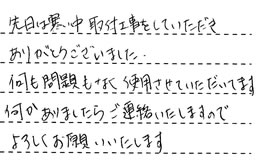 先日は寒い中取付工事をしていただき
ありがとうございました.
何も問題もなく使用させていただいてます
何かありましたらご連絡いたしますので
よろしくお願いいたします